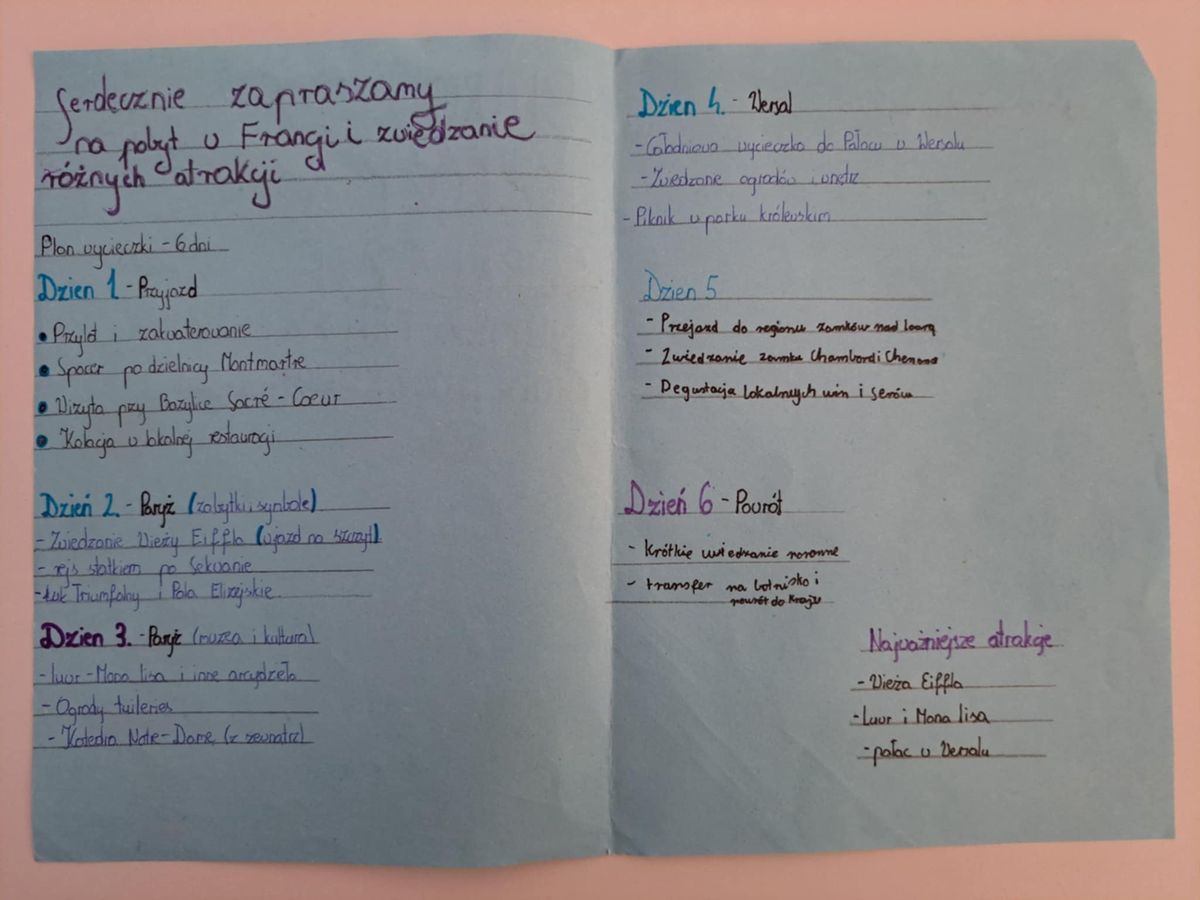 Serdecznie zapraszamy
na pobyt w Francji i zwiedzanie
różnych atrakcji
Plan wycieczki - 6 dni
Dzien 1 - Przyjazd
• Przylot i zakwaterowanie
• Spacer po dzielnicy Montmartre
• Wizyta przy Bazylice Sacré - Coeur
• Kolacja w lokalnej restauracji
Dzień 2. - Paryż (zabytki i symbole)
- Zwiedzanie Wieży Eiffla (wjazd na szczyt)
- rejs statkiem po Sekwanie
- Łuk Triumfalny i Pola Elizejskie
Dzien 3. - Paryż (muzea i kultura)
- luwr - Mona lisa i inne arcydzieła
- Ogrody tuileries
- Katedra Note - Dame (z zewnatrz)
Dzien 4. - Wersal
- Całodniowa wycieczka do Pałacu w Wersalu
- Zwiedzane ogrodów i wnętrz
- Piknik w parku królewskim
Dzien 5
- Przejazd do regionu zamków nad loarą
- Zwiedzanie zamku Chambord i
- Degustacja lokalnych win i serów
Dzień 6 - Powrót
- Krótkie zwiedzanie poranne
- transfer na lotnisko i
powrót do kraju
Najważniejsze atrakcje
- Wieża Eiffla
- Luwr i Mona lisa
- pałac w Wersalu